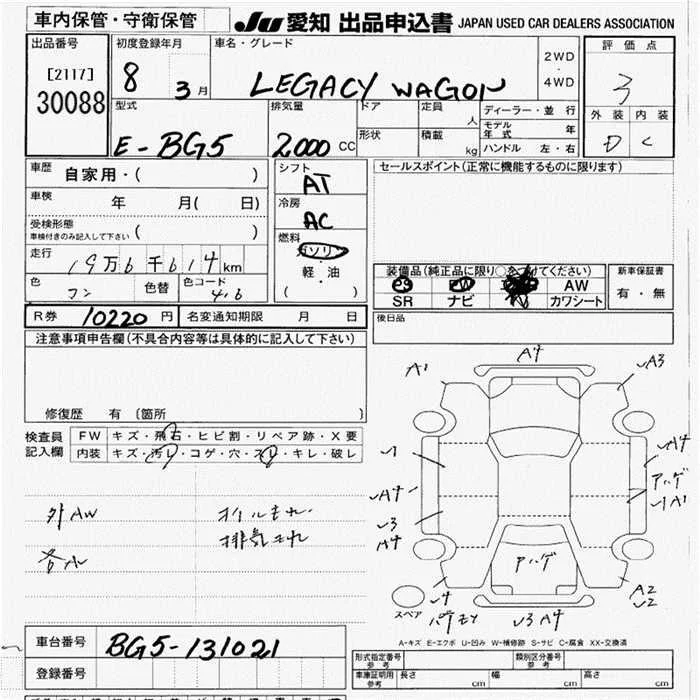 車内保管・守衛保管
JU 愛知 出品申込書 JAPAN USED CAR DEALERS ASSOCIATION
出品番号
[2117]
30088
初度登録年月
8 3月
車名・グレード
LEGACY WAGON
2WD
・
4WD
評価点
3
外装 内装
D C
型式
E-BG5
排気量
2000 CC
ドア
形状
定員 人
積載 kg
ディーラー・並行
モデル年式 年
ハンドル 左・右
車歴 自家用・( )
車検 年 月( 日)
受検形態
車検付きのみ記入して下さい ( )
走行 19万6千614km
色 コン 色替 色コード 4.6
シフト
AT
冷房
AC
燃料
ガソリン
・
軽・油
( )
セールスポイント(正常に機能するものに限ります)
装備品(純正品に限り○をつけてください)
PW AW
SR ナビ カワシート
新車保証書
有・無
R券 10220円 名変通知期限 月 日
後日品
注意事項申告欄(不具合内容等は具体的に記入して下さい)
修復歴 有 〔箇所 〕
検査員
記入欄
FW キズ・飛石・ヒビ割・リペア跡・X要
内装 キズ・汚レ・コゲ・穴・スレ・キレ・破レ
外AW
オイルもれ
排気もれ
A1
A4
A3
A4
アハゲ
A1
A4
3
A4
アハゲ
4
3 A4
A2
2
スペア
A-キズ E-エクボ U-凹み W-補修跡 S-サビ C-腐食 XX-交換済
車台番号 BG5-131021
登録番号
形式指定番号
参考
類別区分番号
参考
車庫証明用
参考
長さ cm 幅 cm 高さ cm